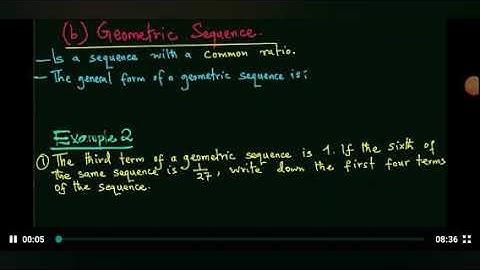 (b) Geometric Sequence.
- Is a sequence with a common ratio.
- The general form of a geometric sequence is:
Example 2
① The third term of a geometric sequence is 1. If the sixth of
the same sequence is 1/27, write down the first four terms
of the sequence.
00:05 08:36